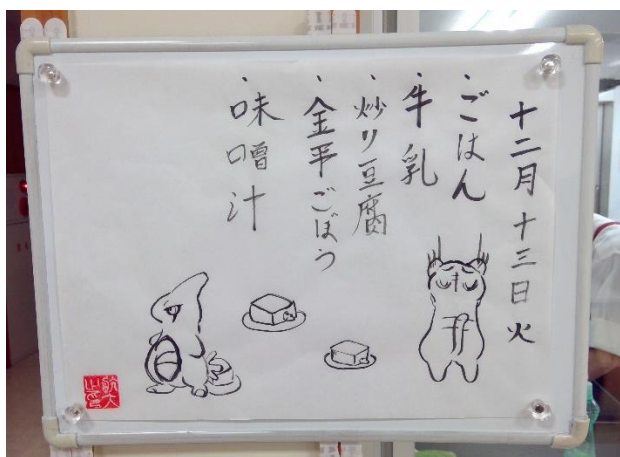 十二月十三日火
・ごはん
・牛乳
・炒り豆腐
・金平ごぼう
・味噌汁